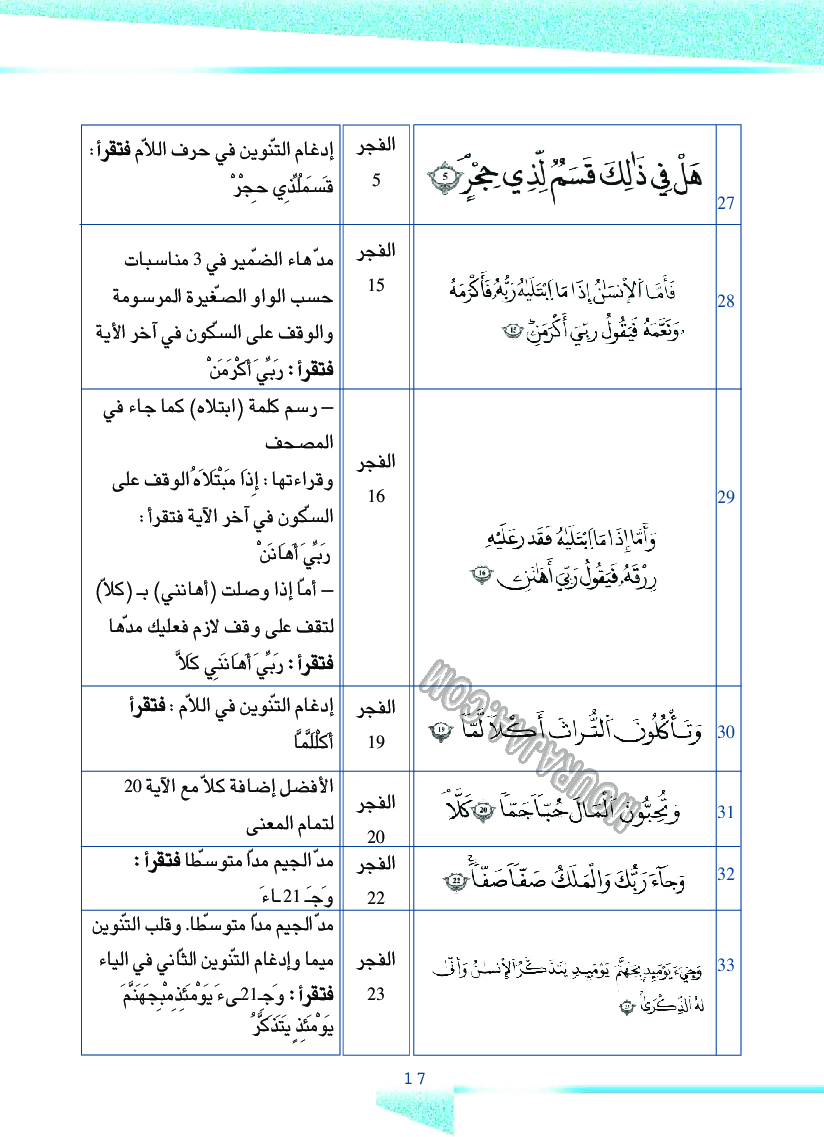 27
هَلْ فِي ذَٰلِكَ قَسَمٌ لِّذِي حِجْرٍ 5
الفجر
5
إدغام التّنوين في حرف اللاّم فتقرأ:
قَسَمَلُذِّي حِجِرْ
28
فَأَمَّا اَلْإِنسَٰنُ إِذَا مَا اَبْتَلَيٰهُ رَبُّهُۥ فَأَكْرَمَهُۥ
وَنَعَّمَهُۥ فَيَقُولُ رَبِّيَ أَكْرَمَنِ 15
الفجر
15
مدّ هاء الضّمير في 3 مناسبات
حسب الواو الصّغيرة المرسومة
والوقف على السّكون في آخر الأية
فتقرأ: رَبِّيَ أَكْرَمَنْ
29
وَأَمَّا إِذَا مَا اَبْتَلَيٰهُ فَقَدَرَ عَلَيْهِ
رِزْقَهُۥ فَيَقُولُ رَبِّيَ أَهَٰنَنِ 16
الفجر
16
– رسم كلمة (ابتلاه) كما جاء في
المصحف
وقراءتها: إِذَا مَبْتَلَاهُ الوقف على
السّكون في آخر الآية فتقرأ:
رَبِّيَ أَهَانَنْ
– أمّا إذا وصلت (أهانني) بـ (كلاّ)
لتقف على وقف لازم فعليك مدّها
فتقرأ: رَبِّيَ أَهَانَنِي كَلاَّ
30
وَتَأْكُلُونَ اَلتُّرَاثَ أَكْلاً لَّمّاً 19
الفجر
19
إدغام التّنوين في اللاّم: فتقرأ
أَكْلَلَّمَّا
31
وَتُحِبُّونَ اَلْمَالَ حُبّاً جَمّاً 20 كَلَّا
الفجر
20
الأفضل إضافة كلاّ مع الآية 20
لتمام المعنى
32
وَجَآءَ رَبُّكَ وَالْمَلَكُ صَفّاً صَفّاً 22
الفجر
22
مدّ الجيم مدّا متوسّطا فتقرأ:
وَجَـ 21ـاءَ
33
وَجِيءَ يَوْمَئِذٍ بِجَهَنَّمَ يَوْمَئِذٍ يَتَذَكَّرُ اُلْإِنسَٰنُ وَأَنّىٰ
لَهُ اُلذِّكْرَىٰ 23
الفجر
23
مدّ الجيم مدّا متوسّطا. وقلب التّنوين
ميما وإدغام التّنوين الثّاني في الياء
فتقرأ: وَجِـ21ـيءَ يَوْمَئِذِمْبِجَهَنَّمَ
يَوْمَئِذٍ يَتَذَكَّرُ
MOURAJAA.COM
17